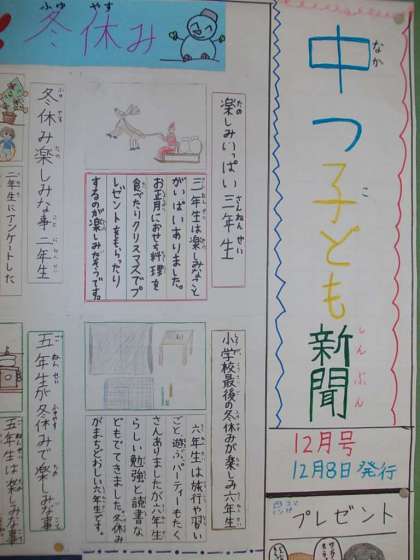 中つ子ども新聞
なか こ しんぶん
12月号
12月8日発行
プレゼント
ふゆ やす
冬休み
楽しみいっぱい三年生
三年生は楽しみなこと
がいっぱいありました。
お正月におせち料理を
食べたりクリスマスでプ
レゼントをもらったり
するのが楽しみだそうです。
冬休み楽しみな事二年生
二年生にアンケートした
小学校最後の冬休みが楽しみ六年生
六年生は旅行や習い
ごと、遊ぶ、パーティーもたく
さんありましたが六年生
らしい勉強と読書な
どもでてきました。冬休み
がまちどおしい六年生です。
五年生が冬休みで楽しみな事
五年生は楽しみな事